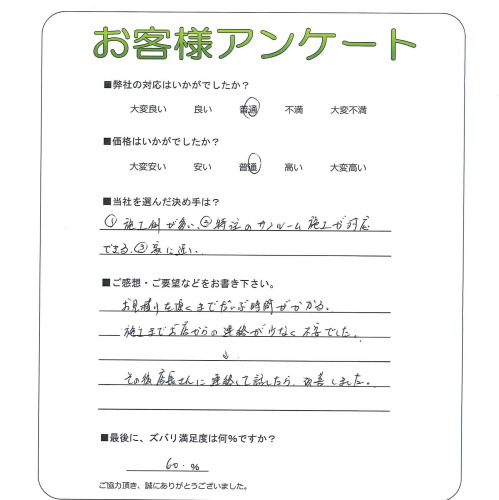 お客様アンケート
■弊社の対応はいかがでしたか？
大変良い 良い 普通 不満 大変不満
■価格はいかがでしたか？
大変安い 安い 普通 高い 大変高い
■当社を選んだ決め手は？
①施工例が多い、②特注のサンルーム施工が対応
できる、③家に近い、
■ご感想・ご要望などをお書き下さい。
お見積りを頂くまでだいぶ時間がかかる。
施工までお店からの連絡が少なく不安でした。
↓
その後店長さんに連絡して話したら、改善しました。
■最後に、ズバリ満足度は何%ですか？
60. %
ご協力頂き、誠にありがとうございました。